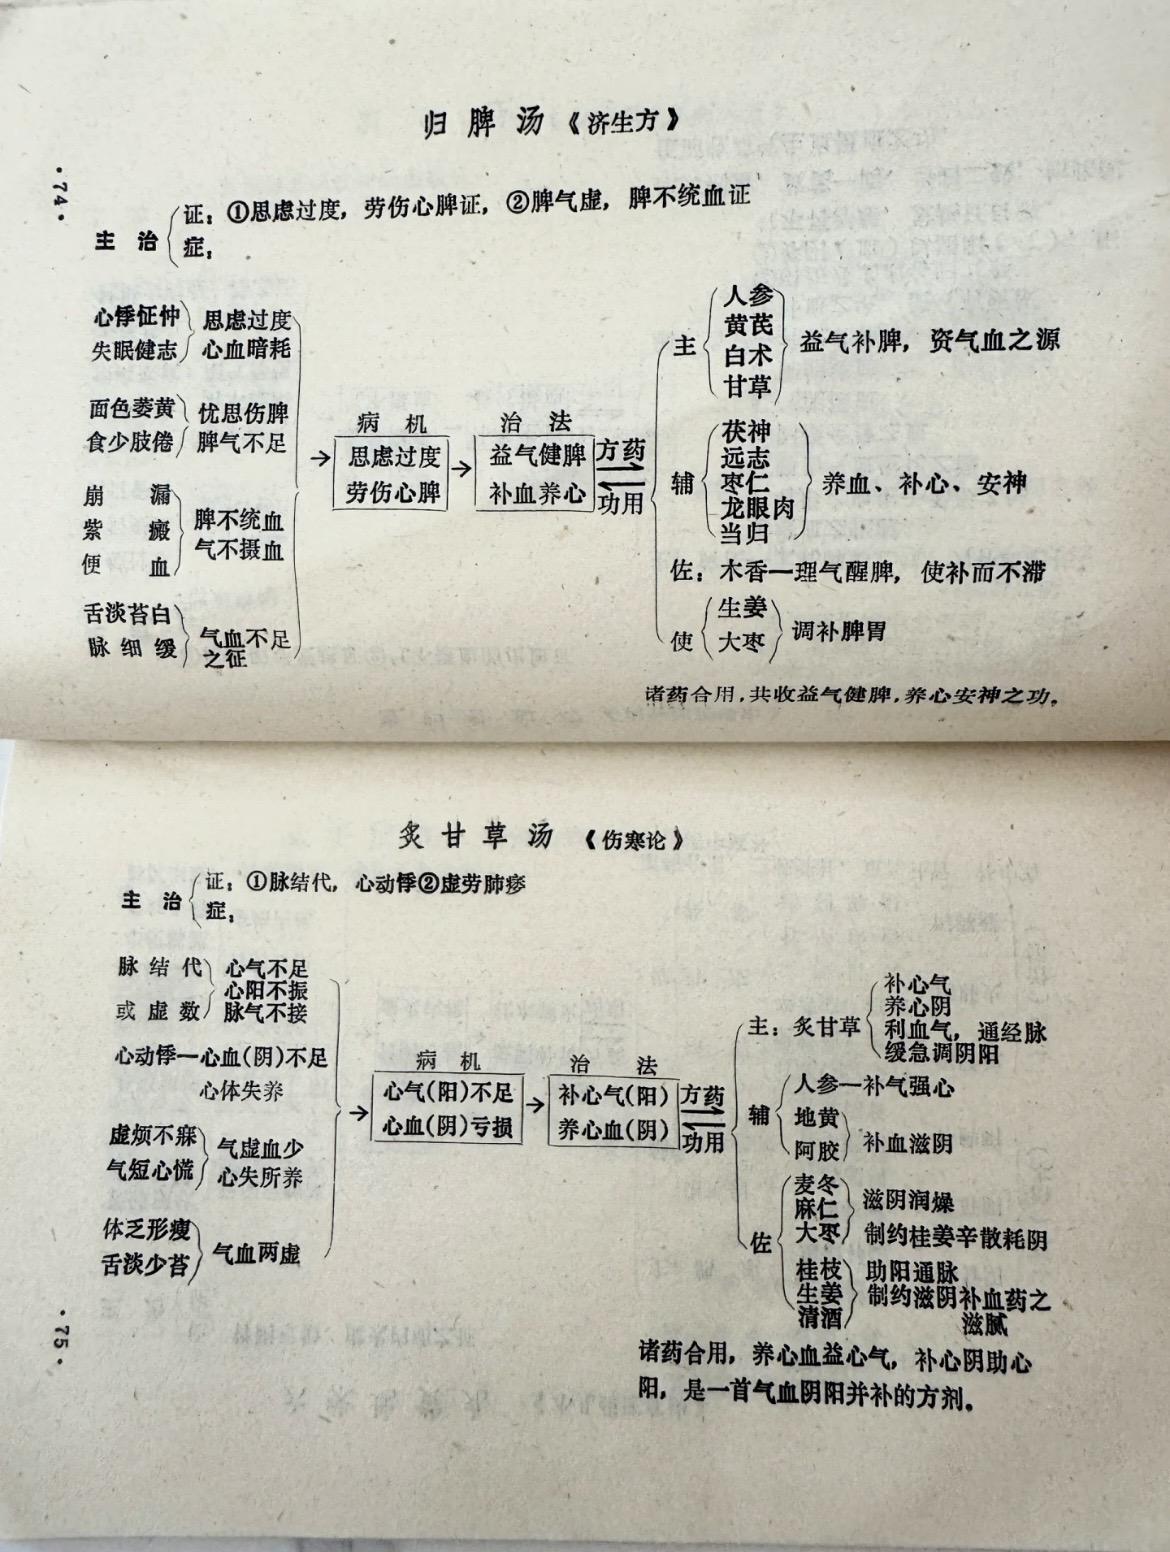 归脾汤《济生方》
·74·
主治
证：①思虑过度，劳伤心脾证，②脾气虚，脾不统血证
症：
心悸怔忡
失眠健志
思虑过度
心血暗耗
面色萎黄
食少肢倦
忧思伤脾
脾气不足
崩漏
紫癜
便血
脾不统血
气不摄血
舌淡苔白
脉细缓
气血不足
之征
病机
思虑过度
劳伤心脾
治法
益气健脾
补血养心
方药
功用
主
人参
黄芪
白术
甘草
益气补脾，资气血之源
辅
茯神
远志
枣仁
龙眼肉
当归
养血、补心、安神
佐：木香—理气醒脾，使补而不滞
使
生姜
大枣
调补脾胃
诸药合用，共收益气健脾，养心安神之功。
炙甘草汤《伤寒论》
主治
证：①脉结代，心动悸②虚劳肺痿
症：
脉结代
或虚数
心气不足
心阳不振
脉气不接
心动悸—心血(阴)不足
心体失养
虚烦不寐
气短心慌
气虚血少
心失所养
体乏形瘦
舌淡少苔
气血两虚
病机
心气(阳)不足
心血(阴)亏损
治法
补心气(阳)
养心血(阴)
方药
功用
主：炙甘草
补心气
养心阴
利血气，通经脉
缓急调阴阳
辅
人参—补气强心
地黄
阿胶
补血滋阴
佐
麦冬
麻仁
大枣
滋阴润燥
制约桂姜辛散耗阴
桂枝
生姜
清酒
助阳通脉
制约滋阴补血药之
滋腻
诸药合用，养心血益心气，补心阴助心
阳，是一首气血阴阳并补的方剂。
·75·